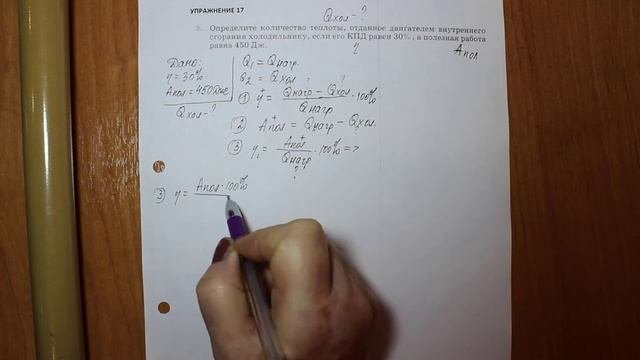 УПРАЖНЕНИЕ 17
Qхол - ?
2. Определите количество теплоты, отданное двигателем внутреннего
сгорания холодильнику, если его КПД равен 30% , а полезная работа
равна 450 Дж.
η
Aпол
Дано:
η = 30%
Aпол = 450 Дж
Qхол - ?
Q1 = Qнагр
Q2 = Qхол
① η = Qнагр - Qхол / Qнагр · 100%
② Aпол = Qнагр - Qхол.
③ η = Aпол / Qнагр · 100% =>
③ η = Aпол · 100%